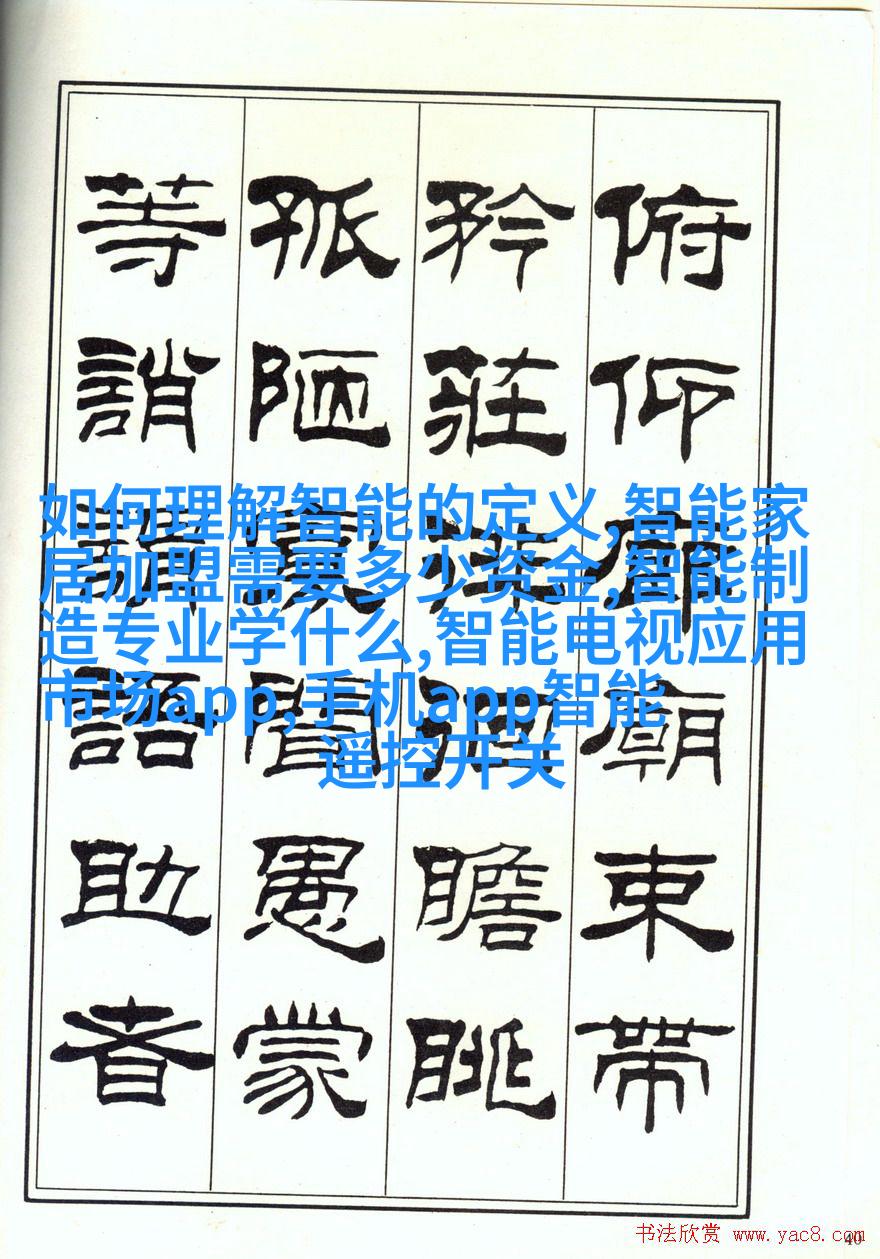 俯仰廊廟束帶
矜莊徘徊瞻眺
孤陋寡聞愚蒙
等誚謂語助者
如何理解智能的定义,智能家
居加盟需要多少资金,智能制
造专业学什么,智能电视应用
市场app,手机app智能
遥控开关
书法欣赏 www.yac8.com
40